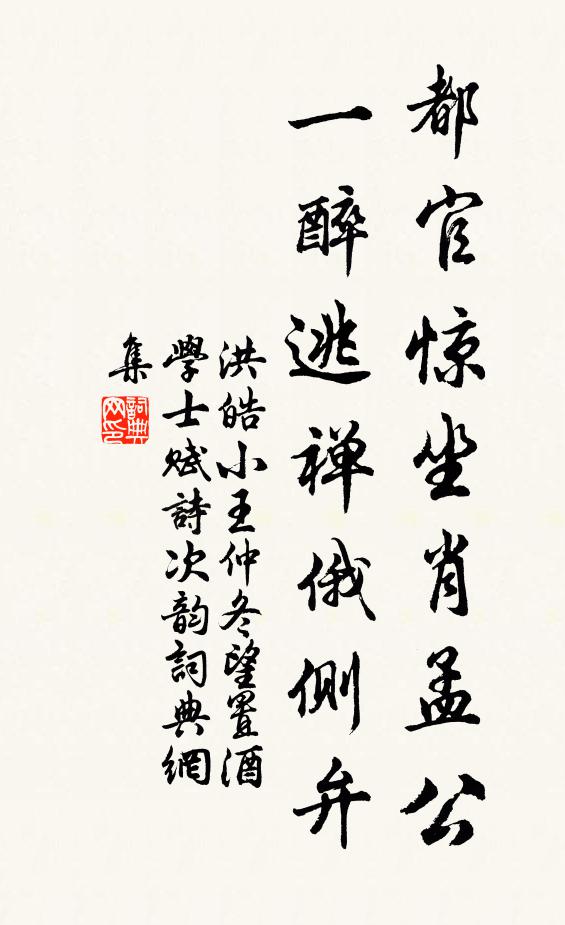 都官惊坐肖孟公
一醉逃禅俄侧弁
洪皓小王仲冬望置酒
學士赋詩次韵詞典網
集
詞典网印